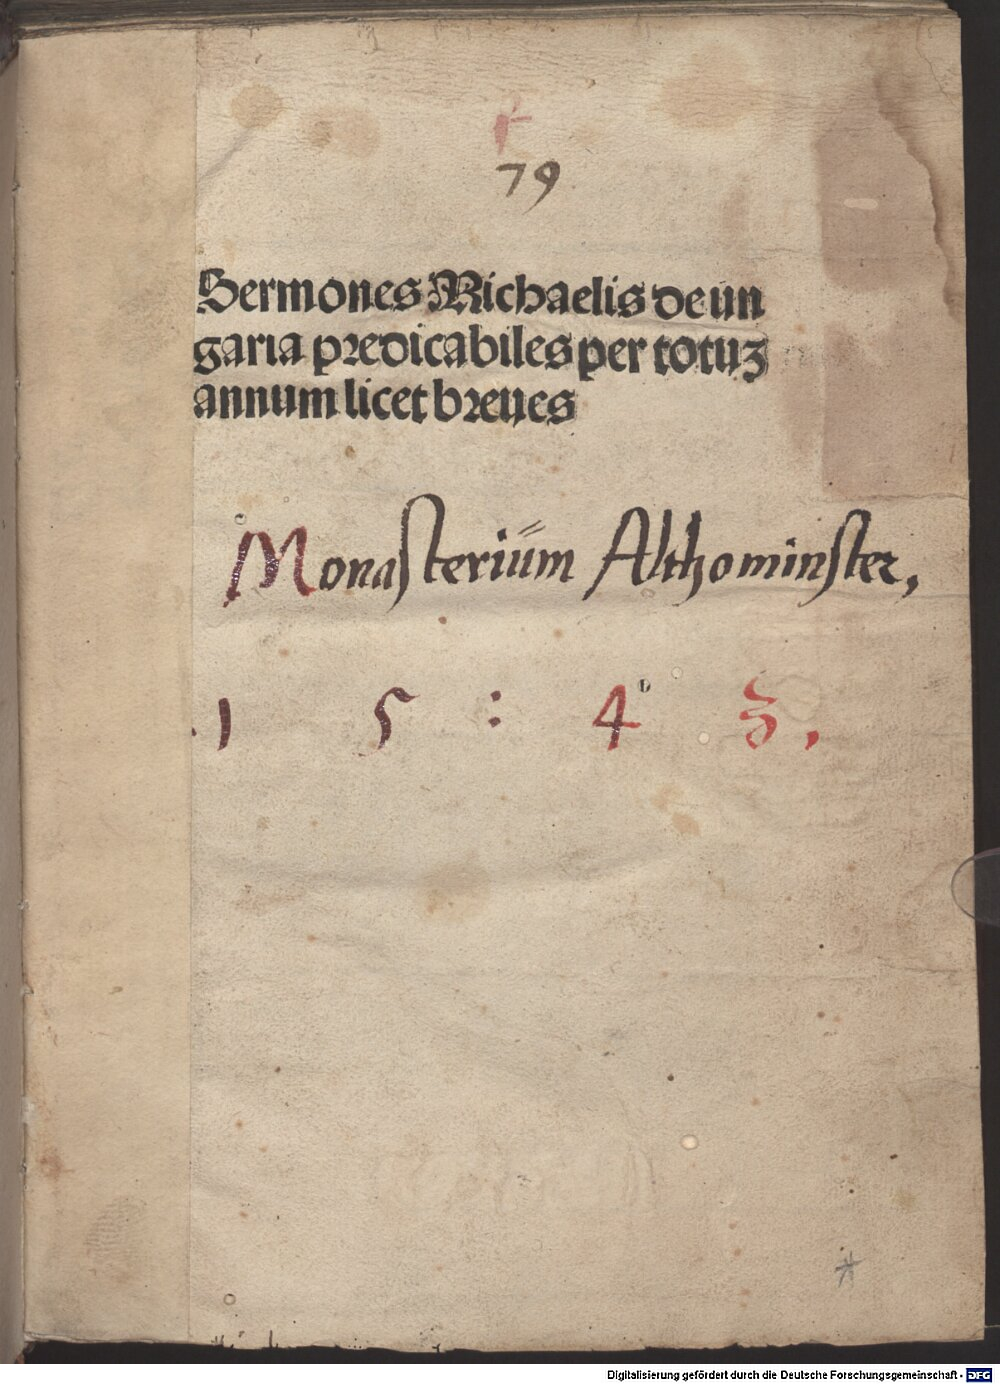 79
Sermones Michaelis de un
garia predicabiles per totuʒ
annum licet breues
Monasteriüm Althominster,
.1 5 : 4 3.
Digitalisierung gefördert durch die Deutsche Forschungsgemeinschaft - DFG